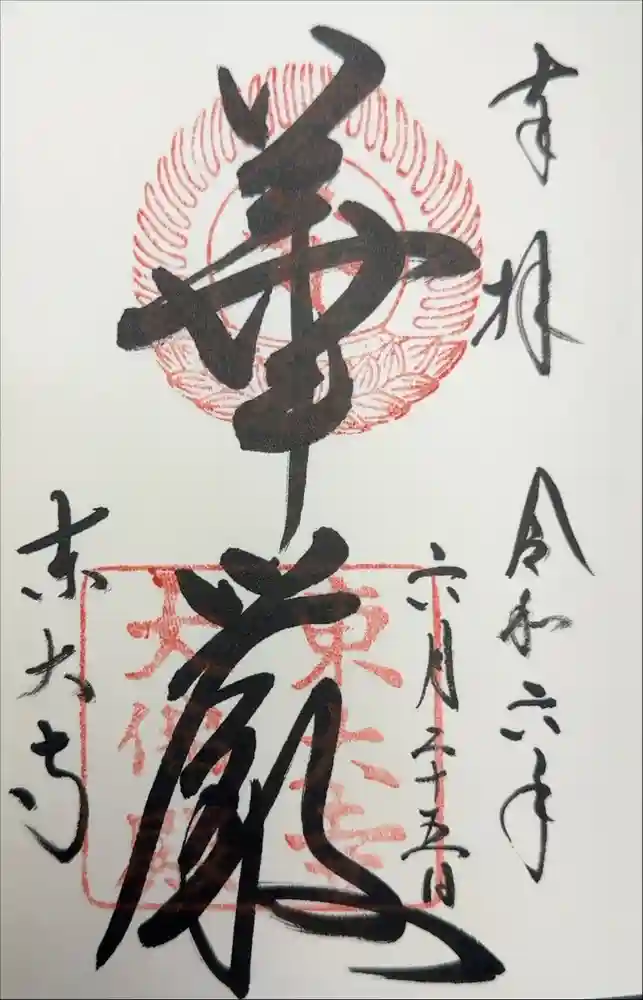 奉拝
令和六年
六月二十五日
華厳
東大寺
大佛殿
東大寺